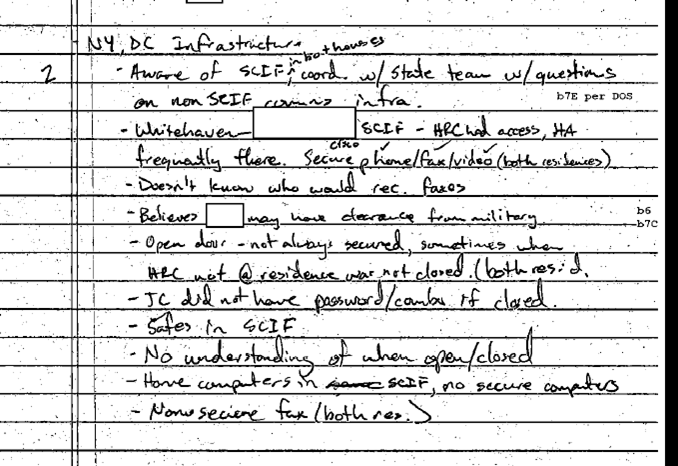 NY, DC Infrastructure
in both houses
2 - Aware of SCIF, coord. w/ State team w/ questions
on non SCIF comms infra.
b7E per DOS
- Whitehaven - SCIF - HRC had access, HA
cisco
frequently there. Secure phone/fax/video (both residences)
- Doesn't know who would rec. faxes
- Believes may have clearance from military
b6
b7C
- Open door - not always secured, sometimes when
HRC not @ residence was not closed. (both resid.
- JC did not have password/combo if closed.
- Safes in SCIF
- No understanding of when open/closed
- Home computers in SCIF, no secure computers
- Non secure fax (both res.)